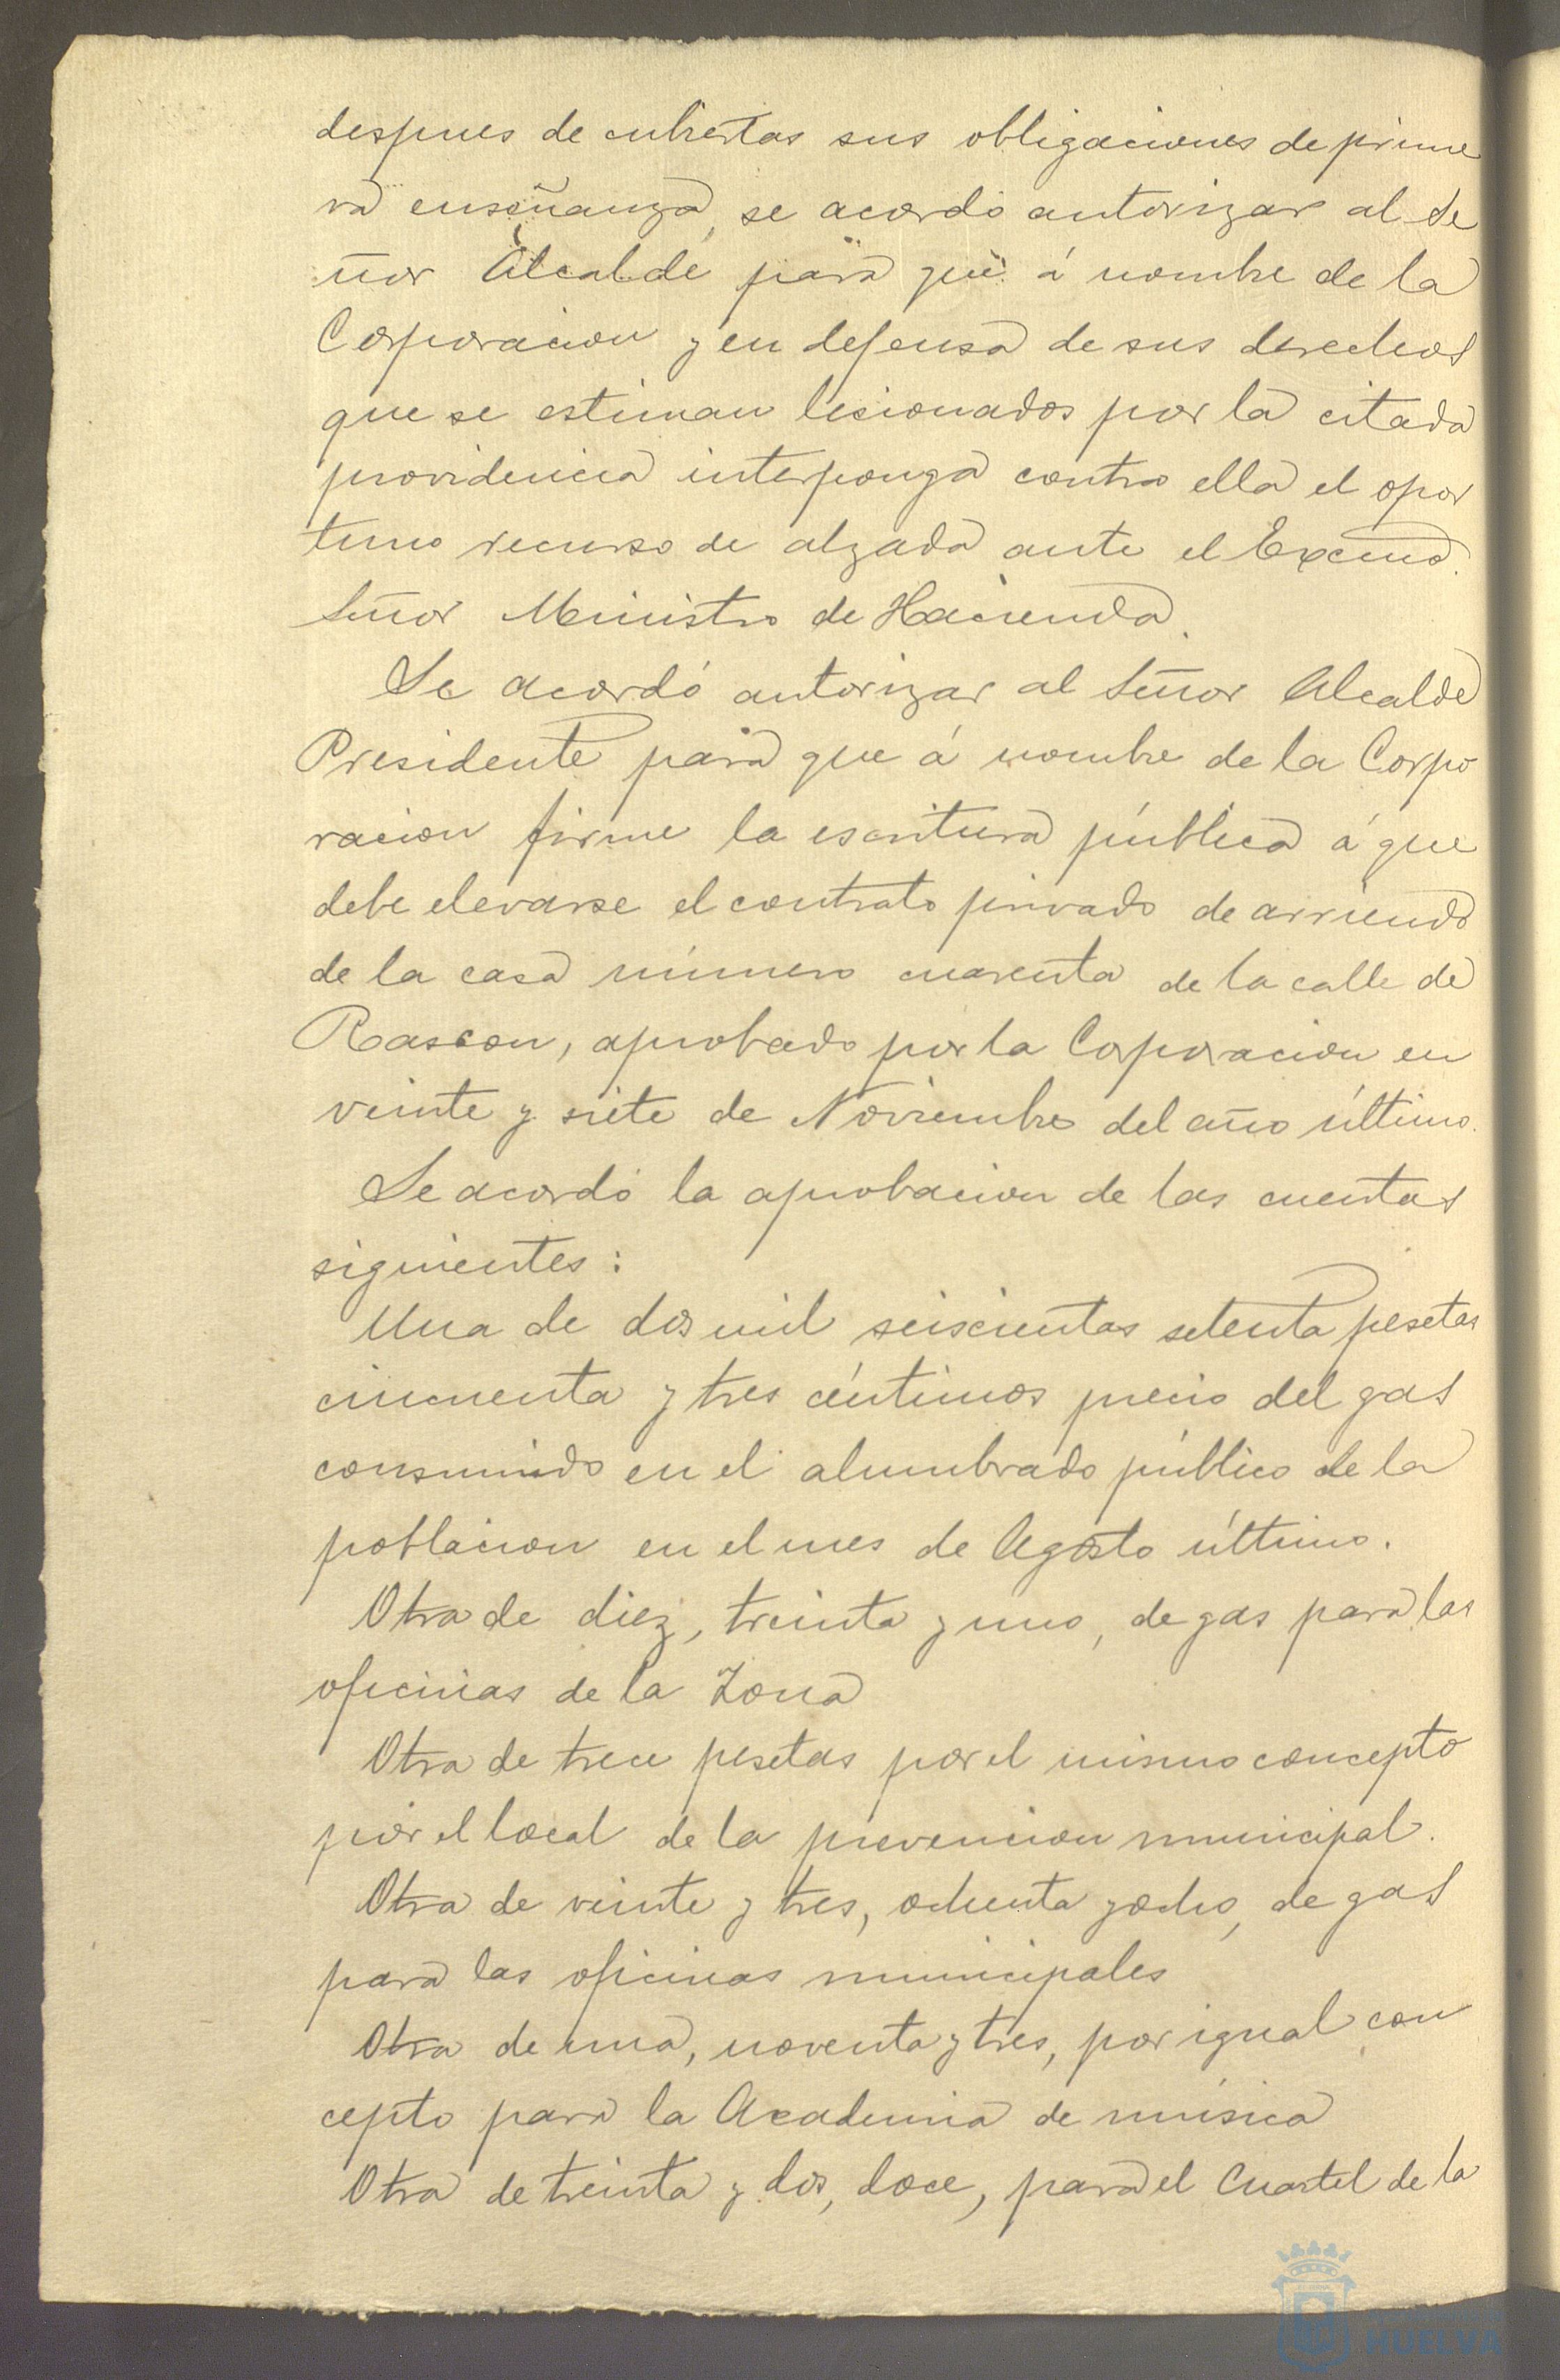 despues de cubiertas sus obligaciones de prime
ra enseñanza, se acordó autorizar al Se
ñor Alcalde para que á nombre de la
Corporacion y en defensa de sus derechos
que se estiman lesionados por la citada
providencia interponga contra ella el opor
tuno recurso de alzada ante el Excmo.
Señor Ministro de Hacienda.
Se acordó autorizar al Señor Alcalde
Presidente para que á nombre de la Corpo
racion firme la escritura pública á que
debe elevarse el contrato privado de arriendo
de la casa número cuarenta de la calle de
Rascon, aprobado por la Corporacion en
veinte y siete de Noviembre del año último.
Se acordó la aprobacion de las cuentas
siguientes:
Una de dos mil seiscientas setenta pesetas
cincuenta y tres céntimos precio del gas
consumido en el alumbrado público de la
poblacion en el mes de Agosto último.
Otra de diez, treinta y uno, de gas para las
oficinas de la Zona
Otra de trece pesetas por el mismo concepto
por el local de la prevencion municipal.
Otra de veinte y tres, ochenta y ocho, de gas
para las oficinas municipales
Otra de una, noventa y tres, por igual con
cepto para la Academia de música
Otra de treinta y dos, doce, para el Cuartel de la
HUELVA